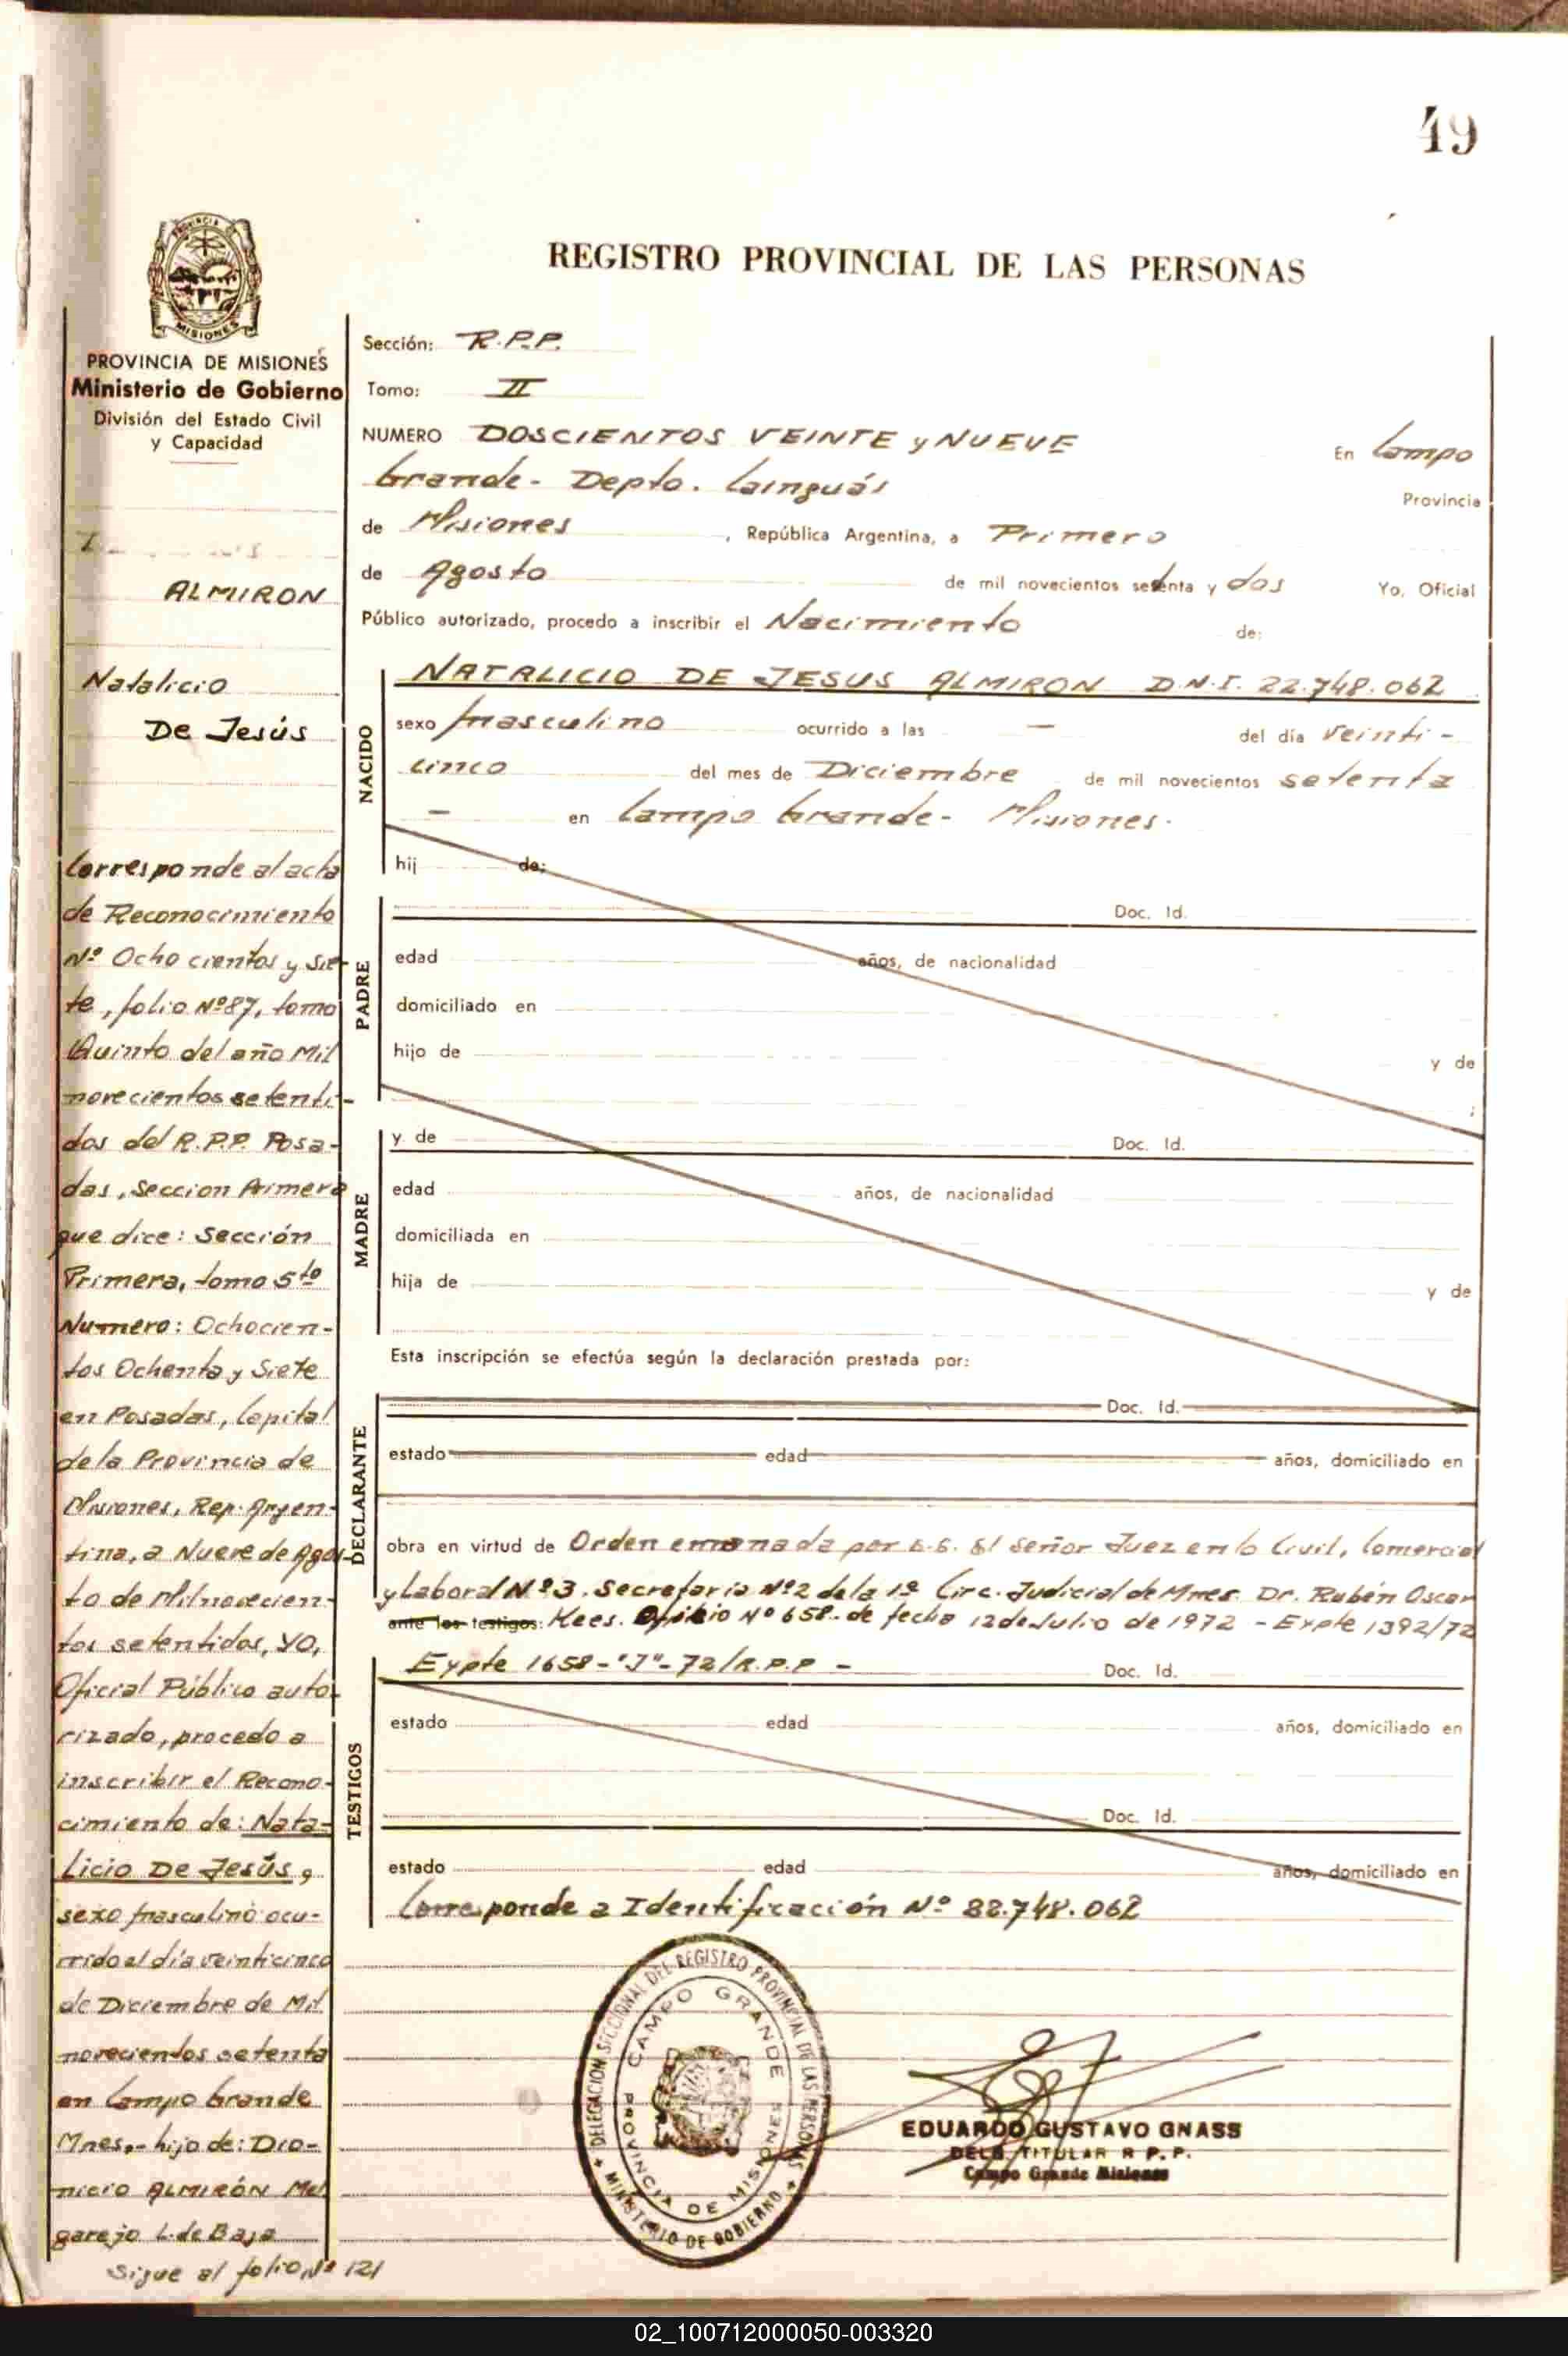 49
REGISTRO PROVINCIAL DE LAS PERSONAS
PROVINCIA DE MISIONES
Ministerio de Gobierno
División del Estado Civil
y Capacidad
ALMIRON
Natalicio
De Jesús
Corresponde al acta
de Reconocimiento
Nº Ocho cientos y Sie-
te, folio Nº 87, tomo
Quinto del año Mil
novecientos setenti-
dos del R.P.P. Posa-
das, Seccion Primera
que dice: Sección
Primera, tomo 5to
Numero: Ochocien-
tos Ochenta y Siete
en Posadas, Capital
de la Provincia de
Misiones, Rep. Argen-
tina, a Nueve de Agos-
to de Milnovecien-
tos setentidos, YO,
Oficial Público auto-
rizado, procedo a
inscribir el Recono-
cimiento de: Nata-
licio De Jesús,
sexo masculino ocu-
rrido el día veinticinco
de Diciembre de Mil
novecientos setenta
en Campo Grande
Mnes.- hijo de: Dio-
nicio ALMIRÓN Mel
garejo L. de Baja
Sigue al folio Nº 121
Sección: R.P.P.
Tomo: II
NUMERO DOSCIENTOS VEINTE y NUEVE En Campo
Grande - Depto. Cainguás Provincia
de Misiones, República Argentina, a Primero
de Agosto de mil novecientos setenta y dos Yo, Oficial
Público autorizado, procedo a inscribir el Nacimiento de:
NACIDO
NATALICIO DE JESUS ALMIRON D.N.I. 22.748.062
sexo masculino ocurrido a las — del día veinti-
cinco del mes de Diciembre de mil novecientos setenta
— en Campo Grande - Misiones.
hij de:
PADRE
Doc. Id.
edad años, de nacionalidad
domiciliado en
hijo de y de
;
MADRE
y de Doc. Id.
edad años, de nacionalidad
domiciliada en
hija de y de
Esta inscripción se efectúa según la declaración prestada por:
DECLARANTE
Doc. Id.
estado edad años, domiciliado en
obra en virtud de Orden emanada por S.S. El señor Juez en lo Civil, Comercial
y Laboral Nº 3. Secretaria Nº 2 de la 1ª Circ. Judicial de Mnes. Dr. Rubén Oscar
ante los testigos: Kees. Nº 658 - de fecha 12 de Julio de 1972 - Expte 1392/72
TESTIGOS
Expte 1658-"J"-72/R.P.P - Doc. Id.
estado edad años, domiciliado en
Doc. Id.
estado edad años, domiciliado en
Corresponde a Identificación Nº 22.748.062
DELEGACION SECCIONAL DEL REGISTRO PROVINCIAL DE LAS PERSONAS
MINISTERIO DE GOBIERNO
CAMPO GRANDE
PROVINCIA DE MISIONES
EDUARDO GUSTAVO GNASS
DELEG. TITULAR R P. P.
Campo Grande Misiones
02_100712000050-003320